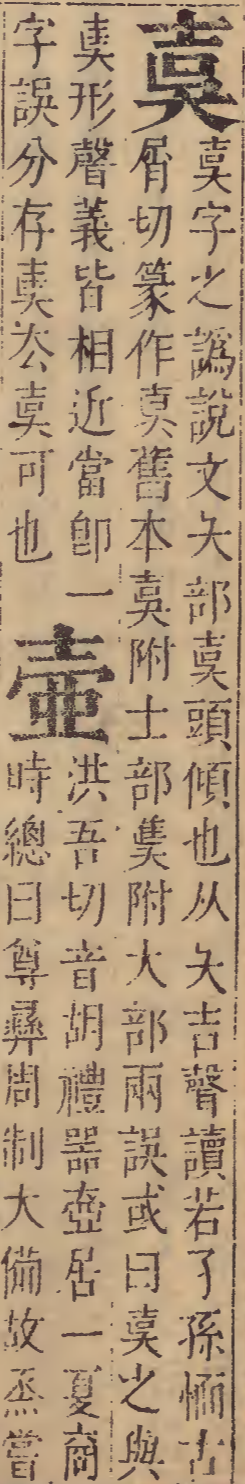 奊
奊字之譌說文夨部奊頭傾也从夨吉聲讀若孑孫愐古
屑切篆作奊舊本奊附士部奊附大部兩誤或曰奊之與
奊形聲義皆相近當卽一
字誤分存奊厺奊可也
壷
洪吾切音胡禮器壺居一夏商
時總曰尊彝周制大備故烝嘗